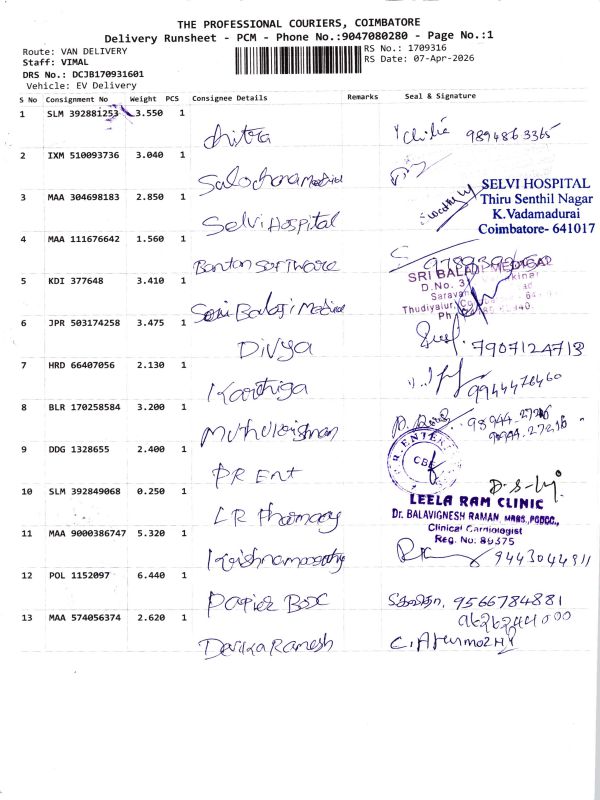 THE PROFESSIONAL COURIERS, COIMBATORE
Delivery Runsheet - PCM - Phone No.:9047080280 - Page No.:1
Route: VAN DELIVERY
RS No.: 1709316
Staff: VIMAL
RS Date: 07-Apr-2026
DRS No.: DCJB170931601
Vehicle: EV Delivery
S No Consignment No Weight PCS Consignee Details Remarks Seal & Signature
1 SLM 392881253 3.550 1
chitra 9894863365
2 IXM 510093736 3.040 1
Sulochana medical
3 MAA 304698183 2.850 1
Selvi Hospital
SELVI HOSPITAL
Thiru Senthil Nagar
K.Vadamadurai
Coimbatore- 641017
4 MAA 111676642 1.560 1
Bonton software
5 KDI 377648 3.410 1
Sri Balaji Medical
SRI BALAJI MEDICAL
D.No. 3
6 JPR 503174258 3.475 1
Divya 7907124713
7 HRD 66407056 2.130 1
Karthiga 9944476460
8 BLR 170258584 3.200 1
Muthukrishnan
9 DDG 1328655 2.400 1
PR Ent
R. ENTER
CBE
10 SLM 392849068 0.250 1
LR Pharmacy
LEELA RAM CLINIC
Dr. BALAVIGNESH RAMAN, MBBS.,PGDCC.,
Clinical Cardiologist
Reg. No: 89375
11 MAA 9000386747 5.320 1
Krishnamoorthy 9443044911
12 POL 1152097 6.440 1
Papier Box 9566784881
9626244000
13 MAA 574056374 2.620 1
Devika Ramesh